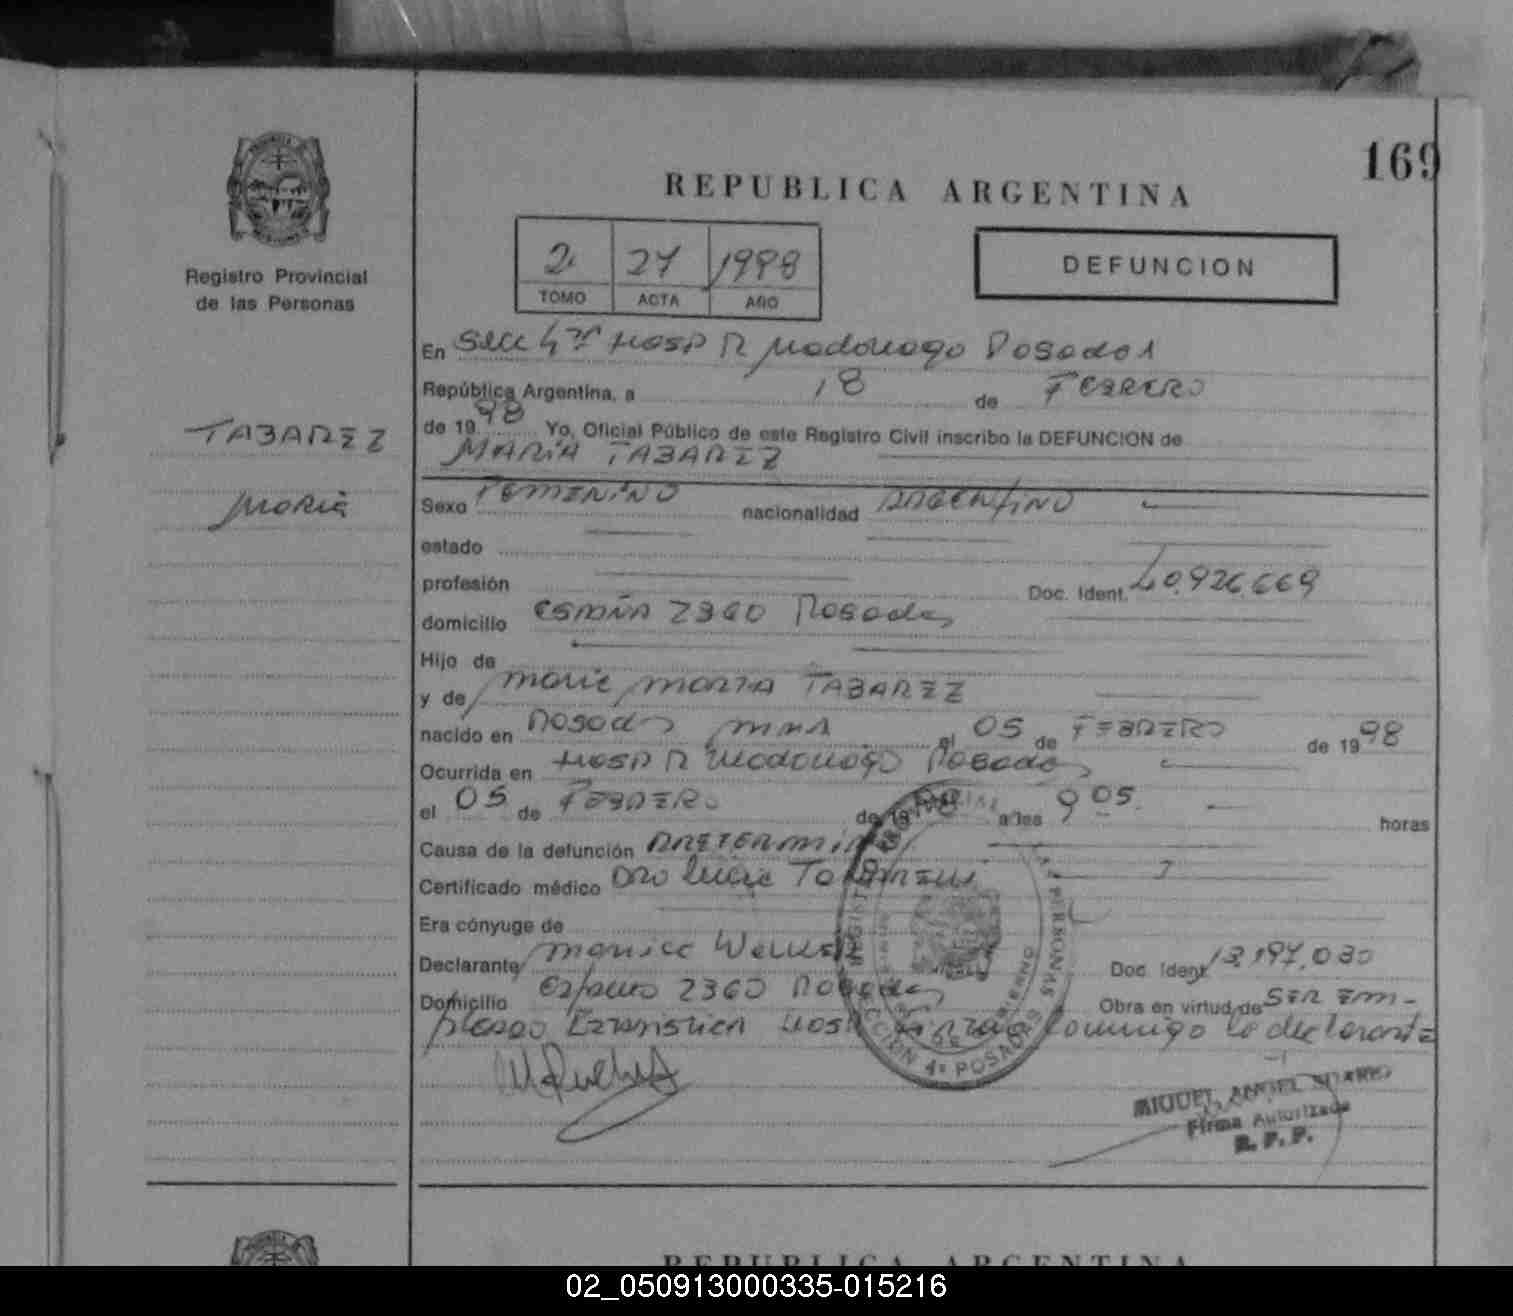 169
REPUBLICA ARGENTINA
Registro Provincial
de las Personas
2 27 1998
TOMO ACTA AÑO
DEFUNCION
En Secc 4ta Hosp R Madariaga Posadas
República Argentina, a 18 de Febrero
de 1998 Yo, Oficial Público de este Registro Civil inscribo la DEFUNCION de
MARIA TABAREZ
TABAREZ
Maria
Sexo FEMENINO nacionalidad ARGENTINO
estado
profesión Doc. Ident. 40.926.669
domicilio ESPAÑA 2360 Posadas
Hijo de
y de MARTA TABAREZ
nacido en Posadas Mnes el 05 de FEBRERO de 1998
Ocurrida en Hosp R Madariaga Posadas
el 05 de FEBRERO de 1998 a las 9 05 horas
Causa de la defunción PRETERMINO
Certificado médico Dra
Era cónyuge de
Declarante Monica Doc. Ident 13.197.030
Domicilio 2360 Posadas Obra en virtud de SER EM-
Hosp la declarante
SECCION 4ª POSADAS
MIGUEL ANGEL
Firma Autorizada
R. P. P.
REPUBLICA ARGENTINA
02_050913000335-015216